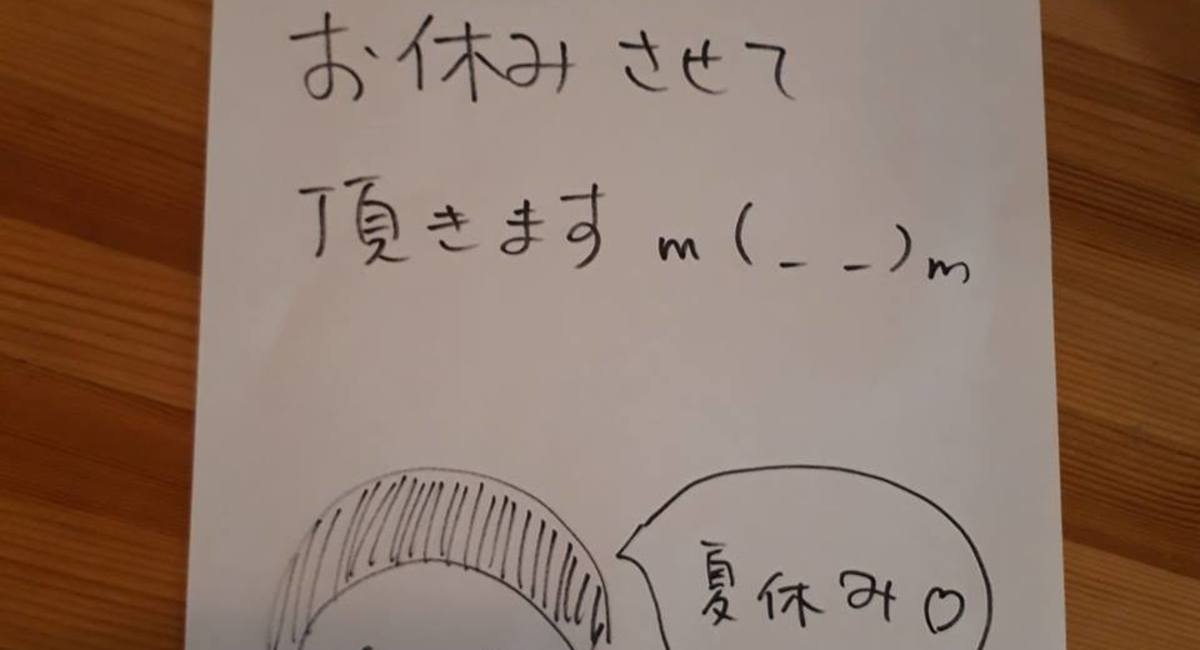 お休みさせて
頂きます m(_ _)m
夏休み♡